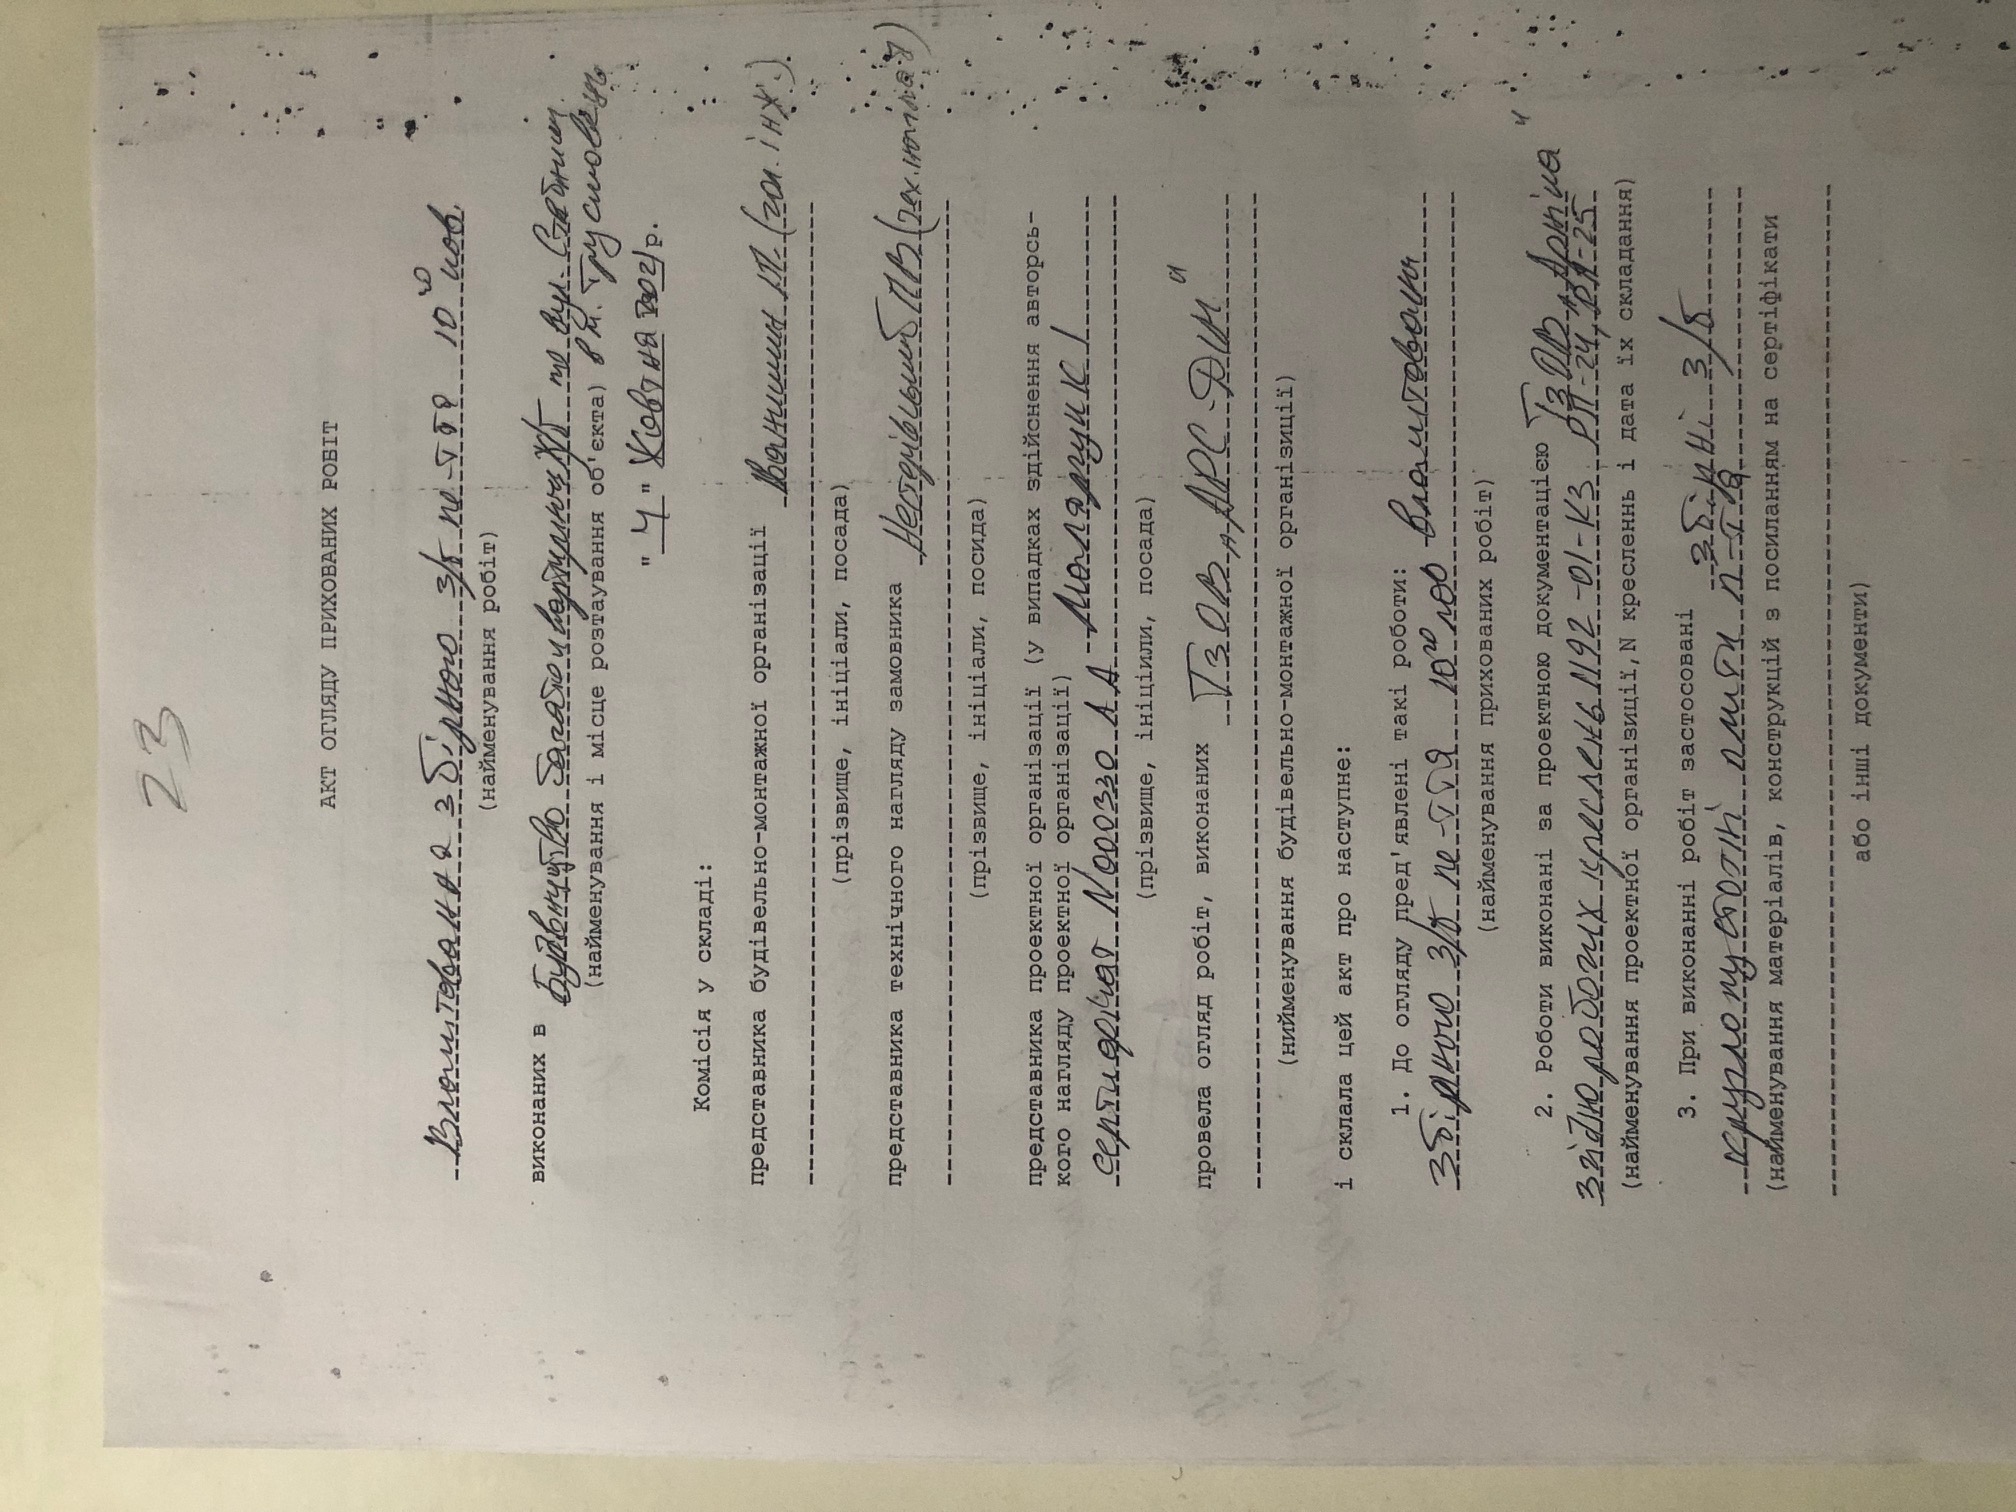 23
АКТ ОГЛЯДУ ПРИХОВАНИХ РОБІТ
Влаштування збірного з/б пе-ття 10го пов.
(найменування робіт)
виконаних в будівництво багатоквартирних ж/б по вул. Стебницька
(найменування і місце розтаування об'єкта) в м. Трускавець
" 4 " Жовтня 2021р.
Комісія у складі:
представника будівельно-монтажної організації Іванишин І.П. (гол. інж.)
(прізвище, ініціали, посада)
представника технічного нагляду замовника ПВ (тех.нагляд)
(прізвище, ініціали, посида)
представника проектної організації (у випадках здійснення авторсь-
кого нагляду проектної організації)
сертифікат N000330 АА
(прізвище, ініціили, посада)
провела огляд робіт, виконаних ТЗОВ "АРС-ДІМ"
(нийменування будівельно-монтажної організиції)
і склала цей акт про наступне:
1. До огляду пред'явлені такі роботи: Влаштування
збірного з/б пе-ття 10го пов
(найменування прихованих робіт)
2. Роботи виконані за проектною документацією ТЗОВ "Артіка"
згідно робочих креслень 1192-01-КЗ РП-24, РП-25
(найменування проектної організиції,N креслень і дата їх складання)
3. При виконанні робіт застосовані збірні з/б
круглопустотні плити п-тя
(найменування матеріалів, конструкцій з посиланням на сертіфікати
або інші документи)